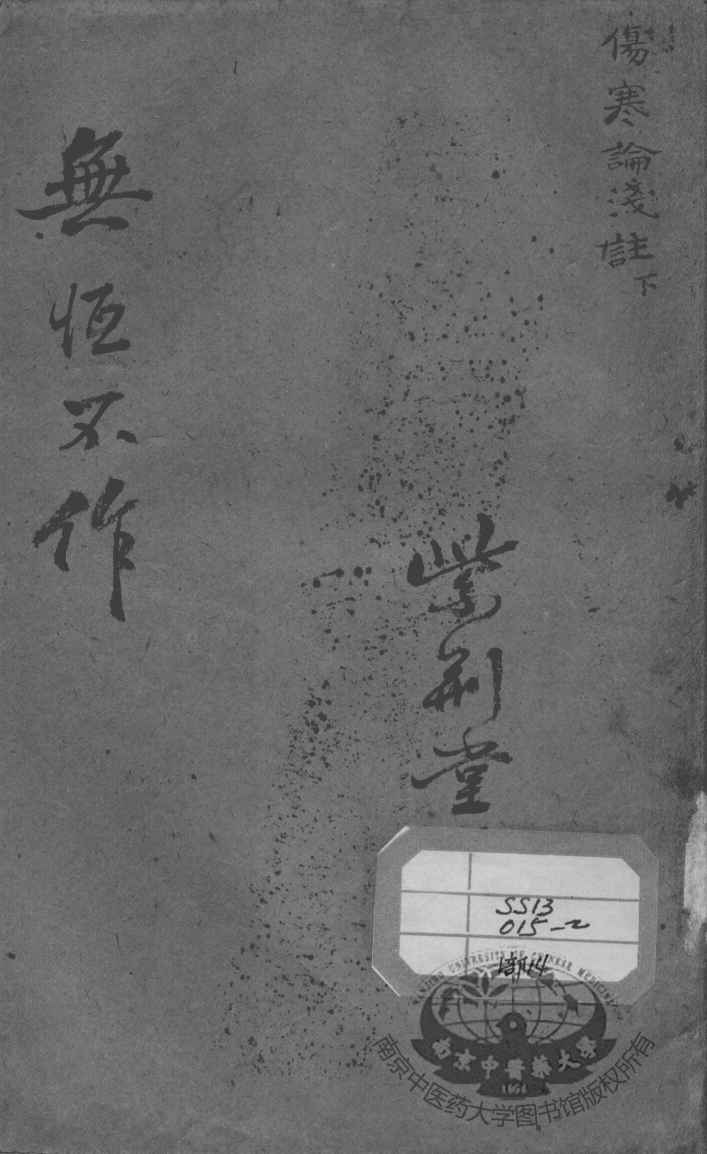 傷寒論淺註
下
紫荆堂
無恒不作
SS13
015-2
UNIVERSITY OF CHINESE MEDICINE
南京中醫藥大學
1954
南京中医药大学图书馆版权所有